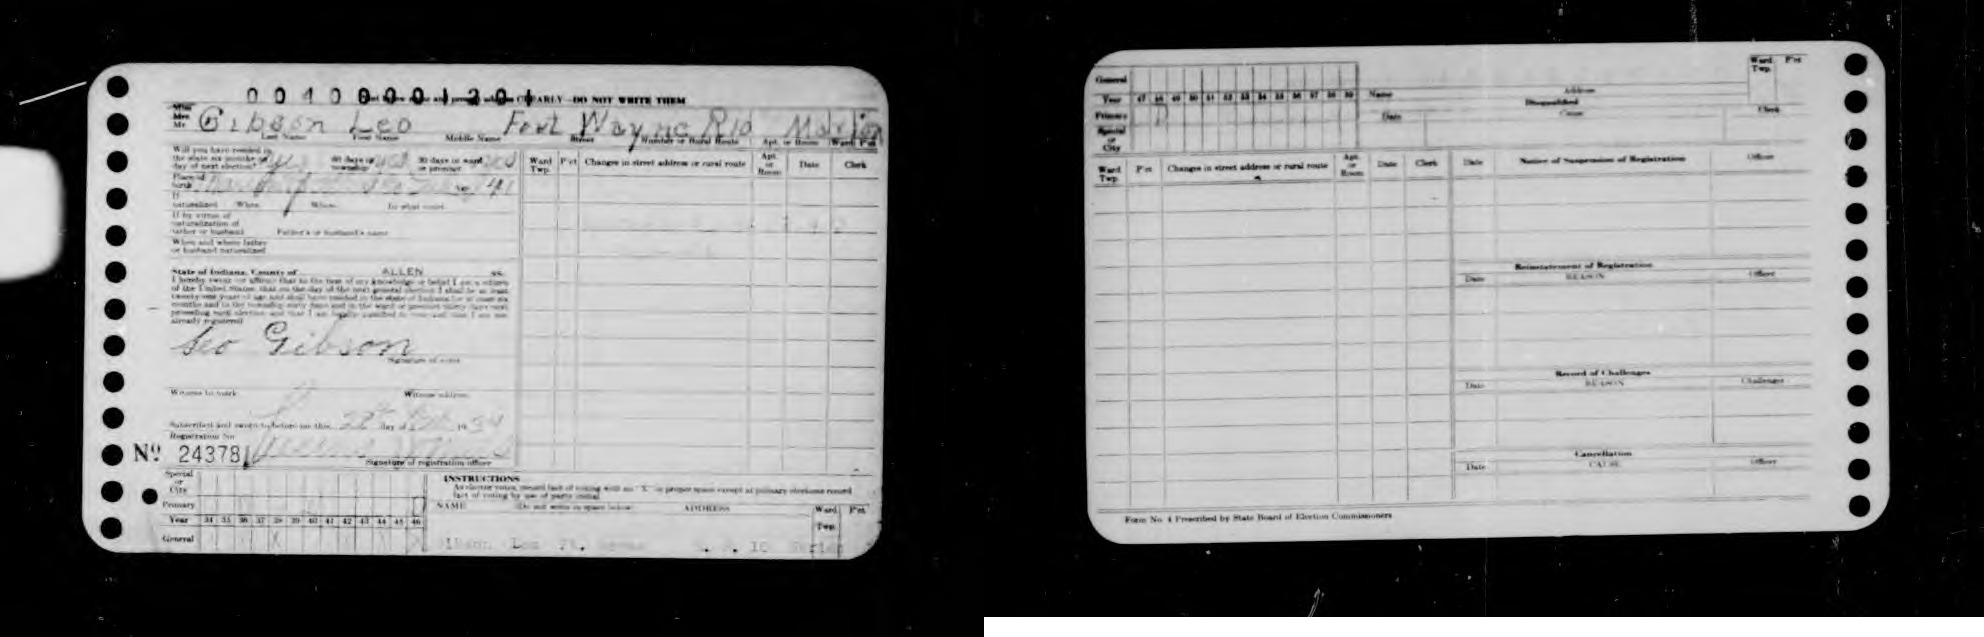 0040000120
CLEARLY—DO NOT WRITE THEM
Miss
Mrs.
Mr. Gibson Leo Fort Wayne R10 Marion
Last Name First Name Middle Name Street Number or Rural Route Apt. or Room Ward P'ct
Will you have resided in
the state six months on yes 60 days in township yes 30 days in ward or precinct yes
day of next election?
Place of
birth
If
naturalized When Where In what court
If by virtue of
naturalization of
father or husband Father's or husband's name
When and where father
or husband naturalized
State of Indiana, County of ALLEN ss.
I hereby swear or affirm that to the best of my knowledge or belief I am a citizen
of the United States, that on the day of the next general election I shall be at least
twenty-one years of age and shall have resided in the state of Indiana for at least six
months and in the township sixty days and in the ward or precinct thirty days next
preceding such election and that I am legally entitled to vote and that I am not
already registered
Leo Gibson
Signature of voter
Witness to mark Witness address
Subscribed and sworn to before me this day of 19
Registration No.
Nº 24378
Signature of registration officer
Ward Twp. P'ct Changes in street address or rural route Apt. or Room Date Clerk
Special
or
City
Primary
Year 34 35 36 37 38 39 40 41 42 43 44 45 46
General
INSTRUCTIONS
As elector votes, record fact of voting with an "X" in proper space except at primary elections record
fact of voting by use of party initial
NAME (Do not write in space below) ADDRESS Ward Twp. P'ct
Gibson, Leo Ft. Wayne R. R. 10 Marion
General
Year 47 48 49 50 51 52 53 54 55 56 57 58 59
Primary
Special
or
City
Name Address Ward Twp. P'ct
Disqualified
Date Cause Clerk
Ward Twp. P'ct Changes in street address or rural route Apt. or Room Date Clerk
Date Notice of Suspension of Registration Officer
Reinstatement of Registration
Date REASON Officer
Record of Challenges
Date REASON Challenger
Cancellation
Date CAUSE Officer
Form No. 4 Prescribed by State Board of Election Commissioners